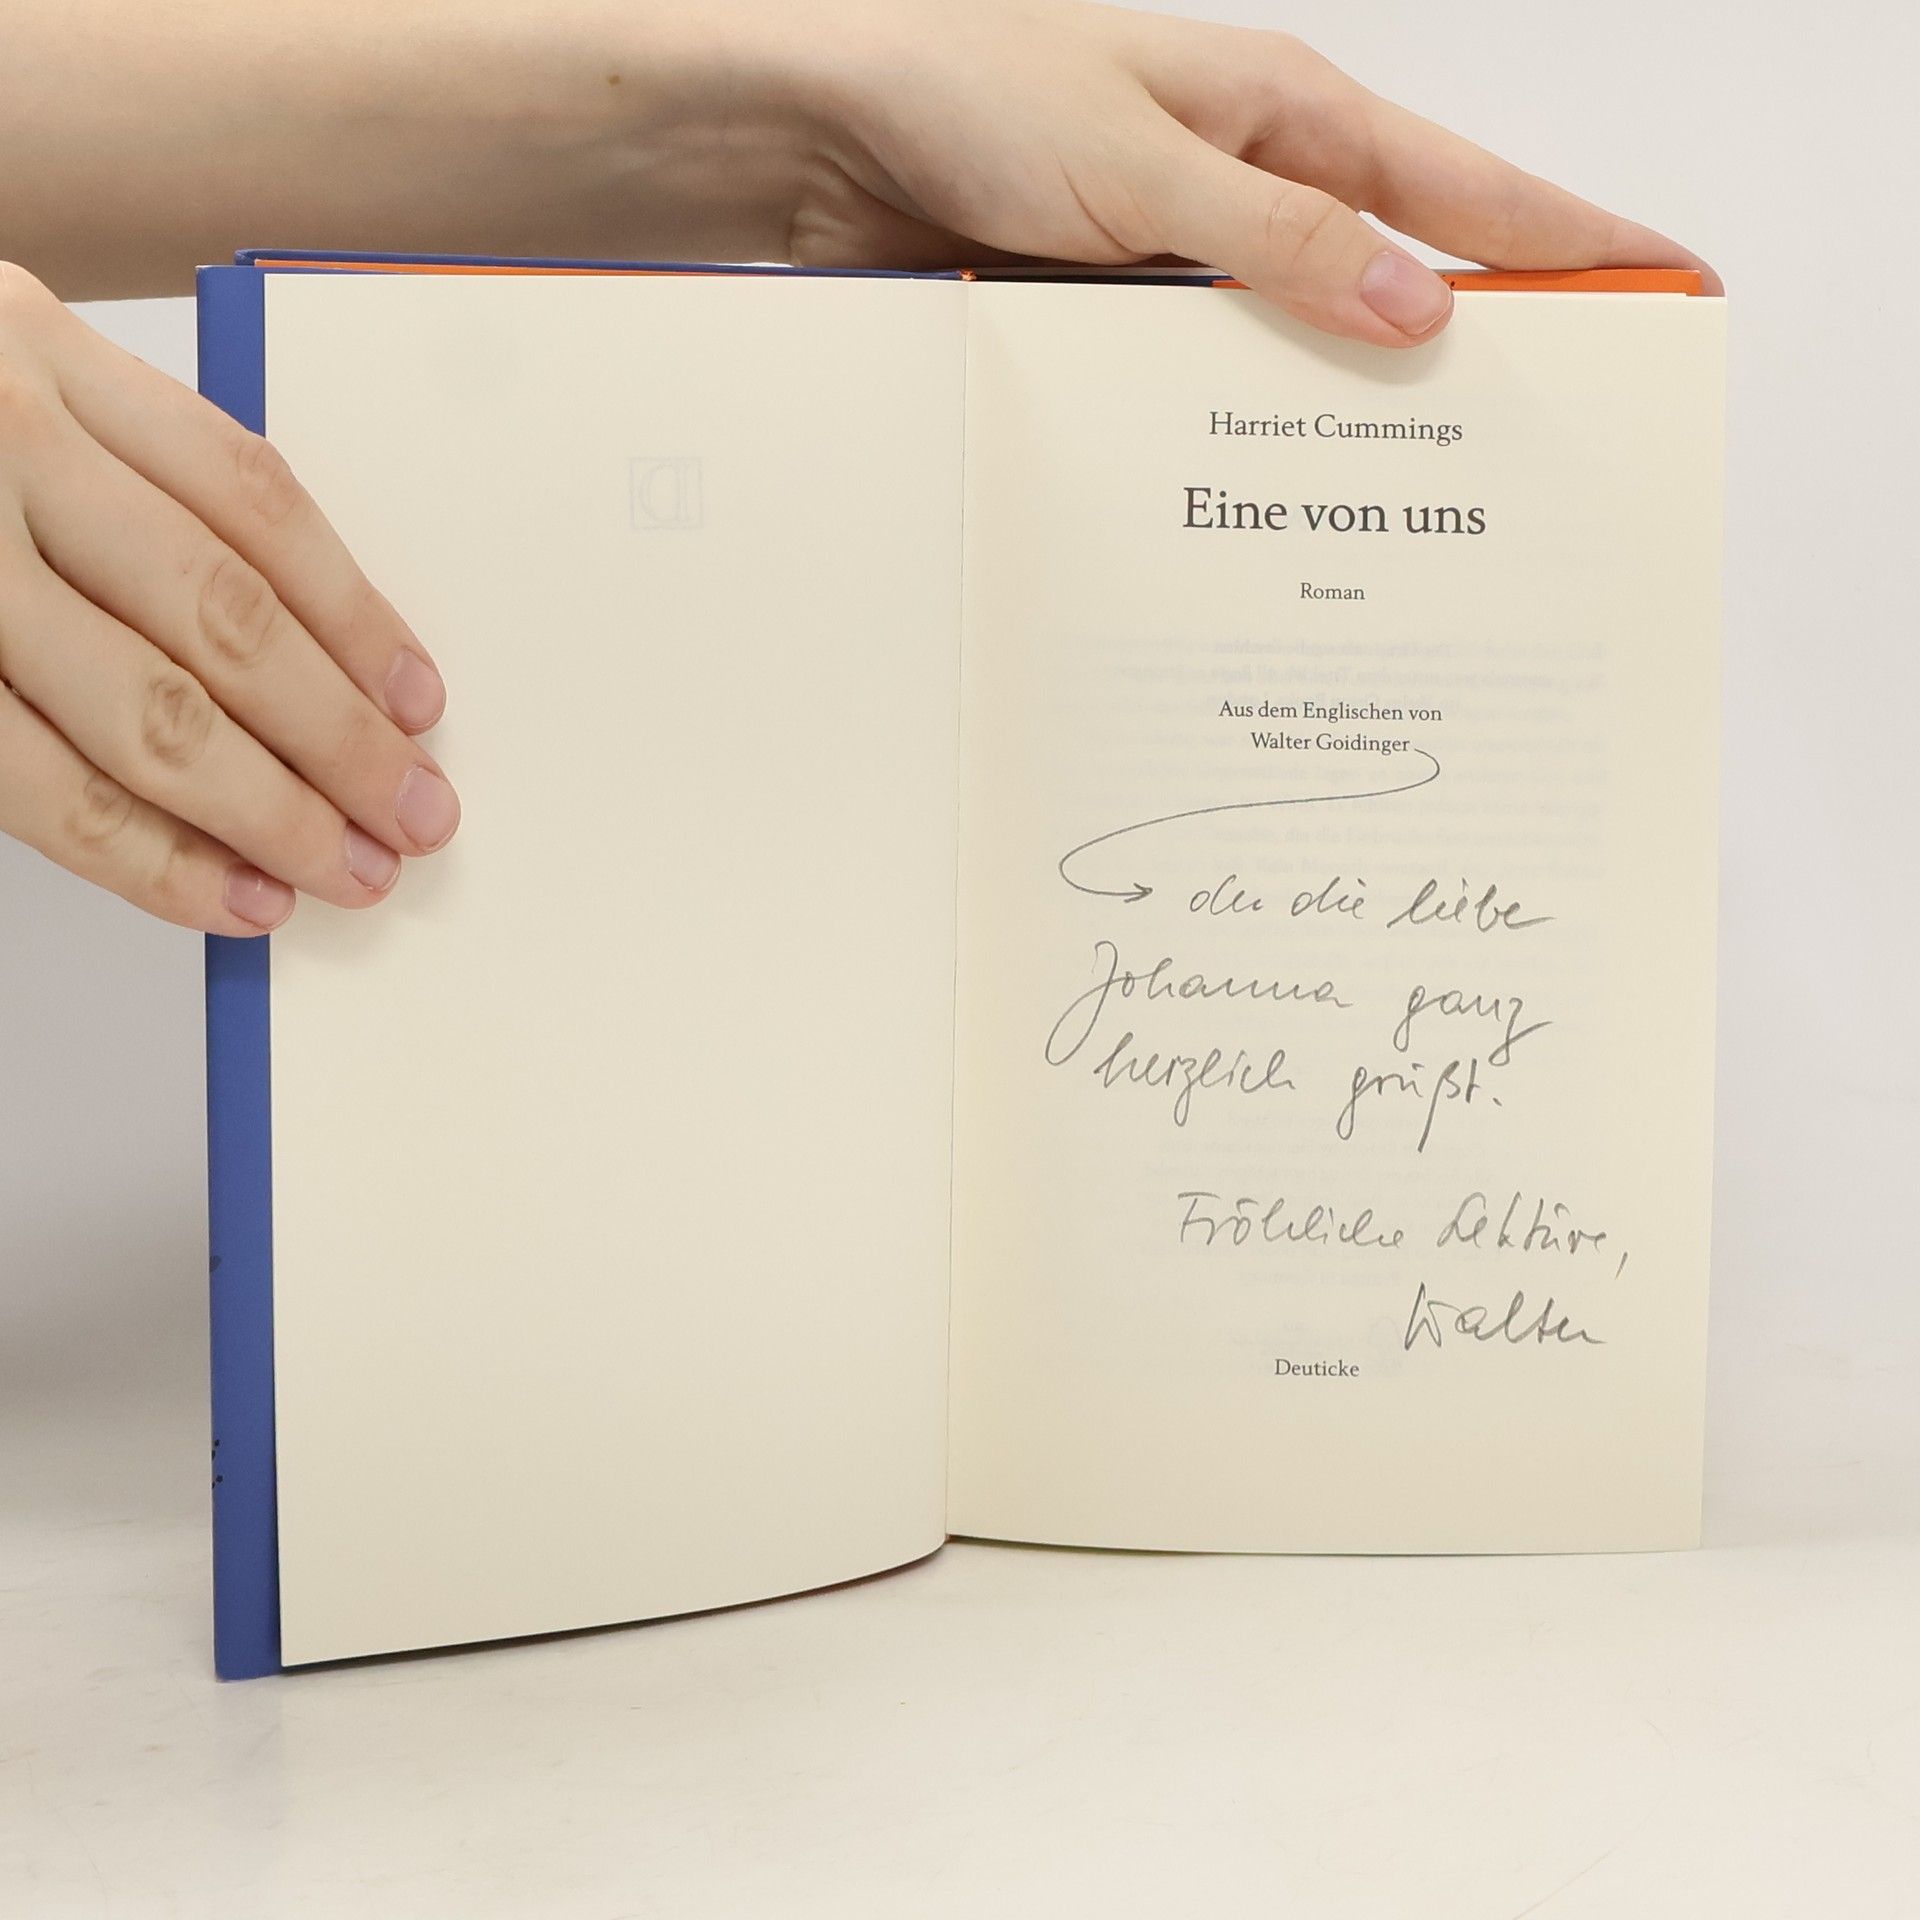 Harriet Cummings
Eine von uns
Roman
Aus dem Englischen von
Walter Goidinger
der die liebe
Johanna ganz
herzlich grüßt.
Fröhliche Lektüre,
Walter
Deuticke